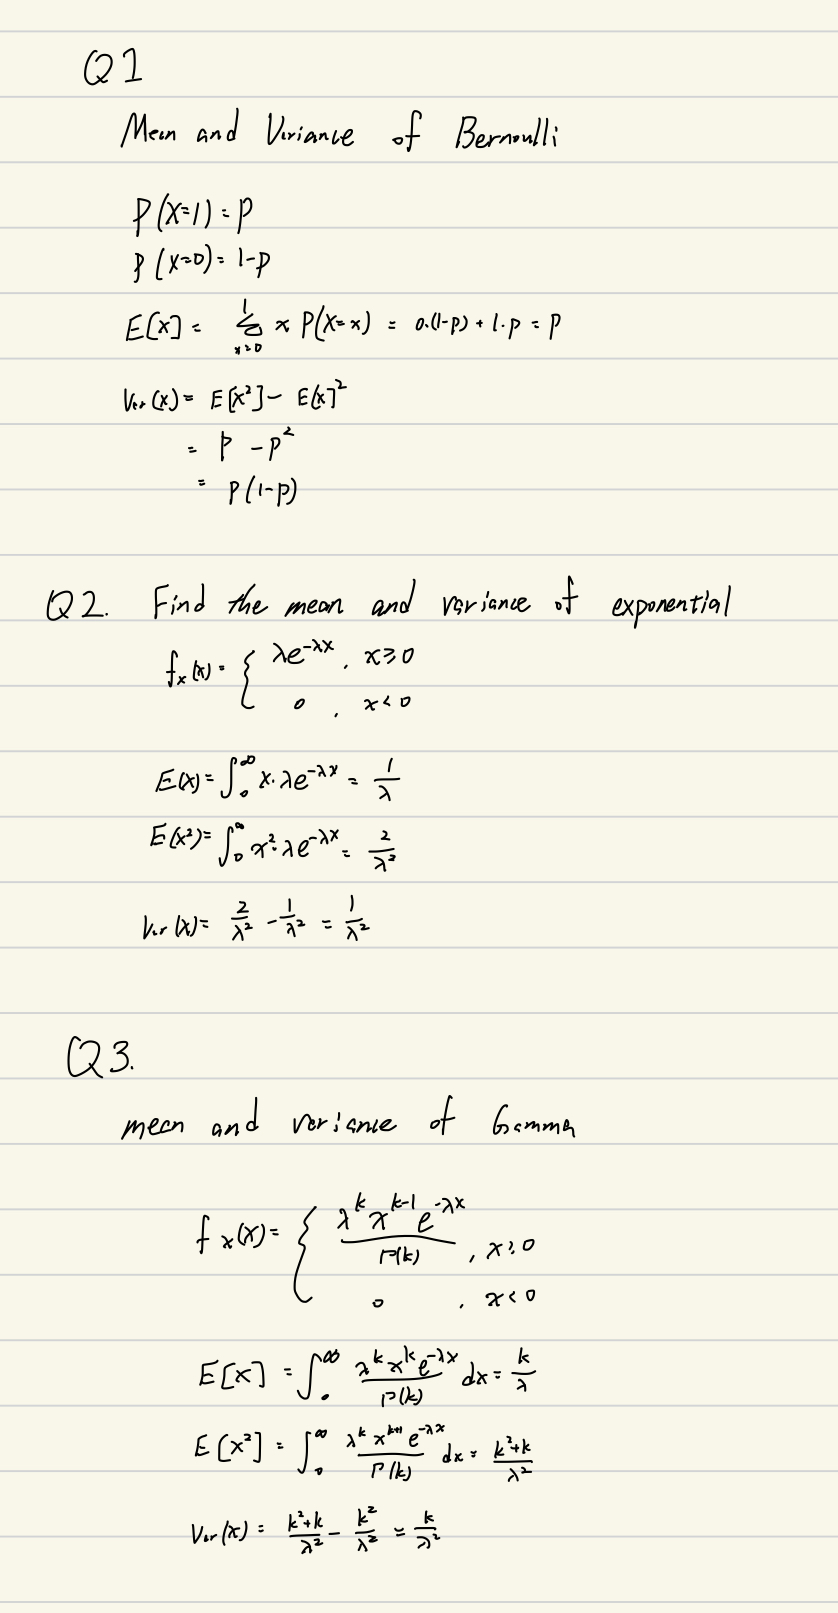 Q1
Mean and Variance of Bernoulli
P(X=1) = p
P(X=0) = 1-p
E[X] = ∑_{x=0}^{1} x P(X=x) = 0·(1-p) + 1·p = p
Var(X) = E[X²] - E[X]²
= p - p²
= p(1-p)
Q2. Find the mean and variance of exponential
f_X(x) = { λe^{-λx}, x≥0
0, x<0
E(X) = ∫_0^∞ x·λe^{-λx} = 1/λ
E(X²) = ∫_0^∞ x²·λe^{-λx} = 2/λ²
Var(X) = 2/λ² - 1/λ² = 1/λ²
Q3.
mean and variance of Gamma
f_X(x) = { λ^k x^{k-1} e^{-λx} / Γ(k), x≥0
0, x<0
E[X] = ∫_0^∞ λ^k x^k e^{-λx} / Γ(k) dx = k/λ
E[X²] = ∫_0^∞ λ^k x^{k+1} e^{-λx} / Γ(k) dx = k²+k / λ²
Var(X) = k²+k / λ² - k²/λ² = k/λ²